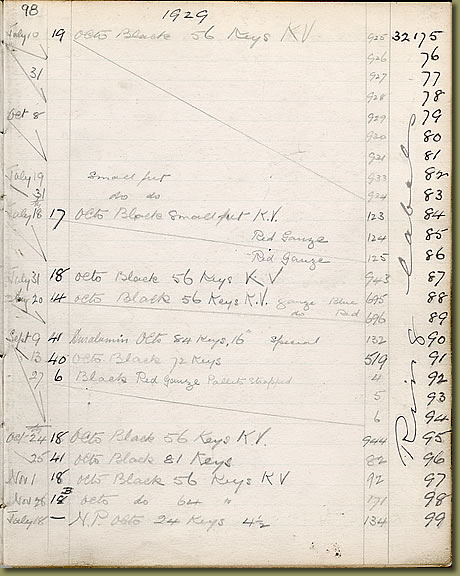 98 1929
July 10 19 Octo Black 56 Keys K.V 925 32175
926 76
31 927 77
928 78
Oct 8 929 79
930 80
931 81
July 19 Small fret 933 82
31 do do 934 83
July 18 17 Octo Black Small fret K.V. 123 84
Red Gauze 124 85
Red Gauze 125 86
July 31 18 Octo Black 56 Keys K V 943 87
20 14 Octo Black 56 Keys K.V. gauze Blue 695 88
do Red 696 89
Sept 9 41 Duralumin Octo 84 Keys, 16" Special 132 90
13 40 Octo Black 72 Keys 519 91
27 6 Black Red Gauze Pallets Strapped 4 92
5 93
6 94
Oct 24 18 Octo Black 56 Keys K.V. 944 95
25 41 Octo Black 81 Keys 82 96
Nov 1 18 Octo Black 56 Keys K V 92 97
Nov 26 18B Octo do 64 " 171 98
July 18 — N.P Octo 24 Keys 4½ 134 99
labels